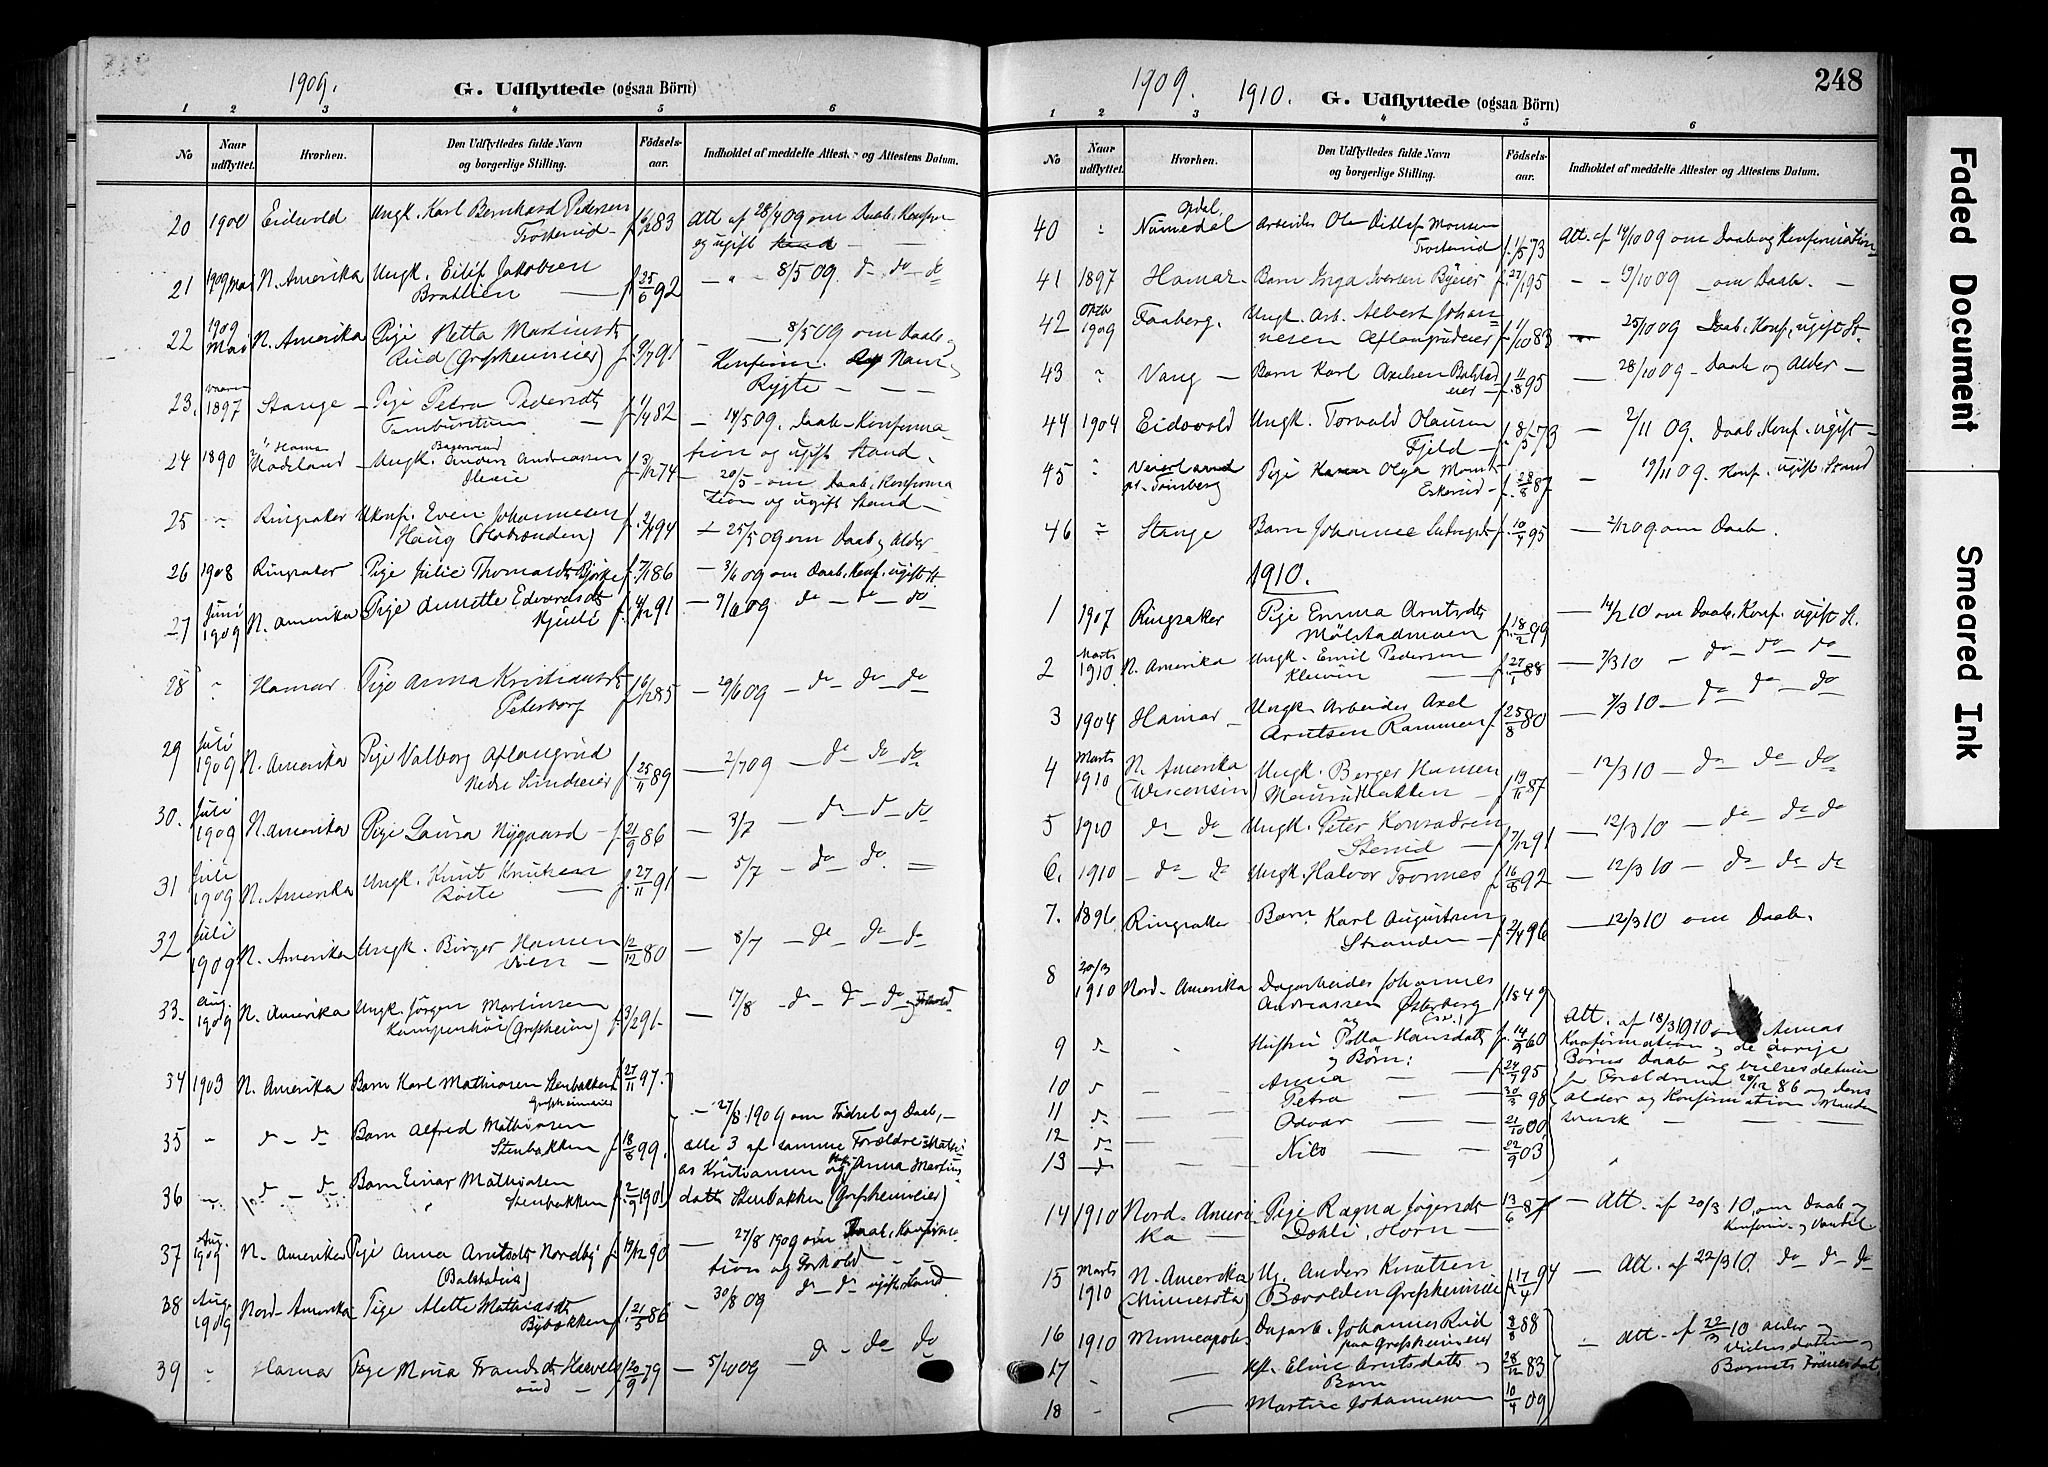 1909.
G. Udflyttede (ogsaa Börn)
1 2 3 4 5 6
No
Naar udflyttet.
Hvorhen.
Den Udflyttedes fulde Navn og borgerlige Stilling.
Födsels-aar.
Indholdet af meddelte Attester og Attestens Datum.
20 1900 Eidsvold Ungk. Karl Bernhard Pedersen f. 6/1283 Att. af 28/4 09 om Daab, Konfirm.
Trosterud og ugift Stand
21 1909 Mai N. Amerika Ungk. Eilif Jakobsen f. 25/6 92 — " — 8/5 09. do do do
Brahlien
22 1909 Mai N. Amerika Pige Netta Martinsdt. f. 9/7 91 — 8/5 09 om Daab,
Rud (Grefsheimeier) Konfirm. Navn
Rygte
23. Vaaren 1897 Stange — Pige Petra Pedersdt. f. 1/4 82 — 14/5 09. Daab, Konfirma-
tion og ugift Stand.
24 1890 Hadeland Ungk. Anders Andreassen f. 3/12 74 — 20/5 — om Daab, Konfirma
tion og ugift Stand —
25 " Ringsaker Ukonf. Even Johannesen f. 2/4 94 — 25/5 09 om Daab, Alder
Haug
26 1908 Ringsaker Pige Julie Thomasdt. Bjørke f. 7/1 86 — 3/6 09 om Daab, Konf. ugift St.
27 Juni 1909 N. Amerika Pige Anette Edvardsdt. f. 4/12 91 — 9/6 09 do do do
28 " Hamar Pige Anna Kristiansdt. f. 16/12 85 — 29/6 09 — do — do — do
Petersborg
29 Juli 1909 N. Amerika Pige Valborg Aflangrud f. 25/11 89 — 2/7 09 — do do do
30. Juli 1909 N. Amerika Pige Laura Nygaard — f. 21/9 86 — 3/7 — do — do — do
31 Juli 1909 N. Amerika Ungk. Knut Knutsen f. 27/11 91 — 5/7 — do do =
Røste
32 Juli 1909 N. Amerika Ungk. Birger Hansen 12/12 80 — 8/7 — do — do — do
Vien —
33. Aug. 1909 N. Amerika Ungk. Jörgen Martinsen f. 3/2 91 — 17/8 — do — do — do og Forhold
(Grefsheim)
34 1903 N. Amerika Barn Karl Mathiasen Stenbakken f. 27/11 97.
Grefsheimeier
35 " do — do Barn Alfred Mathiasen f. 18/8 99. — 27/8 1909 om Födsel og Daab, —
Stenbakken alle 3 af samme Forældre: Mathi-
36 " do — do Barn Einar Mathiasen f. 2/9 1901 as Kristiansen og Anna Martins
Stenbakken datt. Stenbakken (Grefsheimeier)
37 Aug. 1909 N. Amerika Pige Anna Arntsdt. Nordby f. 19/12 90 — 27/8 1909 om Daab, Konfirma-
tion og Forhold —
38 Aug. 1909 Nord-Amerika Pige Alette Mathiasdt. f. 21/5 86 — 30/8 09 do — do — ugift Stand
Bybakken
39 " Hamar Pige Mina Frandsdt. f. 20/9 79 — 5/10 09 — do — do do
1909. 1910.
G. Udflyttede (ogsaa Börn)
248
1 2 3 4 5 6
No
Naar udflyttet.
Hvorhen.
Den Udflyttedes fulde Navn og borgerlige Stilling.
Födsels-aar.
Indholdet af meddelte Attester og Attestens Datum.
40 " Opdal Numedal Arbeider Ole Ditlef Monsen f. 1/5 73 Att. af 14/10 09 om Daab og Konfirmation
Trosterud
41 1897 Hamar Barn Inga Iversen Byeier f. 27/1 95 — — 19/10 09 — om Daab. —
42 Oktb 1909 Faaberg. Ungk. Arb. Albert Johan- f. 1/10 83 — 25/10 09 Daab, Konf., ugift St.
nesen Aflangrudeier
43 " Vang — Barn Karl Axelsen Balstad f. 11/8 95 — 28/10 09 — Daab og Alder —
eier
44 1904 Eidsvold Ungk. Torvald Olausen f. 8/5 73 — 2/11 09. Daab, Konf. ugift —
Fjeld —
45 " Tønsberg Pige Olga Monsdt. f. 28/8 87 — 19/11 09. Konf. ugift Stand
Eskerud
46 " Stange Barn Johanne Ludvigsdt. f. 10/7 95 — 2/12 09 om Daab.
1910.
1 1907 Ringsaker Pige Emma Arntsdt. f. 18/2 99 — 14/2 10 om Daab, Konf. ugift St.
Mølstadmoen
2 Marts 1910 N. Amerika Ungk. Emil Pedersen f. 27/1 88 — 7/3 10 — do — do — do
Kleiven
3 1904 Hamar — Ungk. Arbeider Axel f. 25/8 80 — 7/3 10 — do — do — do
Arntsen Rammen
4 Marts 1910 N. Amerika (Wisconsin) Ungk. Berger Hansen f. 19/11 87 — 12/3 10 — do — do — do
Maurudbakken
5 1910 do — do Ungk. Peter Konradsen f. 7/12 91 — 12/3 10 — do — do do
Stenrud
6. 1910 — do — do Ungk. Halvor Tronnes f. 16/8 92 — 12/3 10 — do do do
7. 1896 Ringsaker Barn Karl Augustsen f. 2/4 96 — 12/3 10 om Daab.
Stranden
8 20/3 1910 Nord-Amerika Dagarbeider Johannes f. 1849
Andreassen Østerberg
9 do " Hustru Polla Hansdatt. f. 14/9 60 Att. af 18/3 1910 om Annas
og Børn: Konfirmation og de øvrige
10 do Anna — f. 24/7 95 Børns Daab og vielsesdatum
11 do Petra — 30/3 98 for Forældrene 28/12 86 og dens
12 do Odvar — 21/10 00 alder og Konfirmation. Manden
13 — do Nils — 22/9 03 svensk
14 1910 Nord-Ameri- Pige Ragna Jørgensdt. 13/6 87 — Att. af 20/3 10, om Daab og
ka Dæhli, Horn — Konfirm. og Vandel
15 Marts 1910 N. Amerika (Minnesota) U. Anders Knutsen f. 17/4 94 — Att. af 22/3 10. do do do
Grefsheimeie
16 1910 Minneapolis Dagarb. Johannes Rud 8/8 88 — Att. af 22/3 10 alder og
paa Grefsheimeier Vielsesdatum og
17 " Hst. Elise Arntsdatt. og 28/12 83 Barnets Fødselsdat.
Barn
18 " Martin Johannesen 10/4 09
Faded Document
Smeared Ink